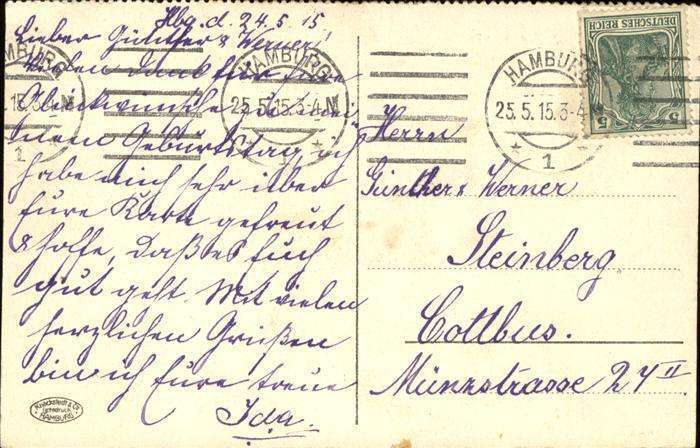 Hbg. d. 24.5.15.
Lieber Günther & Werner!
Vielen Dank für Eure
Glückwünsche zu mei-
nem Geburtstag, ich
habe mich sehr über
Eure Karte gefreut
& hoffe, daß es Euch
gut geht. Mit vielen
herzlichen Grüßen
bin ich Eure treue
Ida.
Herrn
Günther & Werner
Steinberg
Cottbus.
Münzstrasse 24 II
HAMBURG
25.5.15.3-4 N
1
HAMBURG
25.5.15.3-4 N
*
HAMBURG
25.5.15.3-4
* 1 *
DEUTSCHES REICH
5 5
Knackstedt & Co
Lichtdruck
HAMBURG